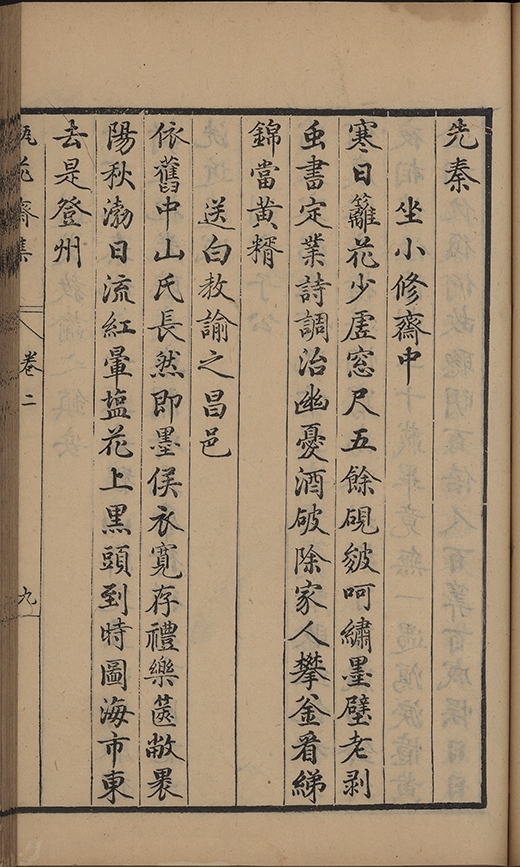 先秦
坐小修齋中
寒日籬花少虗窓尺五餘硯皴呵繡墨壁老剥
䖝書定業詩調治幽憂酒破除家人攀釜看綈
錦當黄糈
送白敎諭之昌邑
依舊中山氏長然即墨侯衣寛存禮樂篋敝褁
陽秋渤日流紅暈塩花上黒頭到時圖海市東
去是登州
瓶花齋集 卷二 九